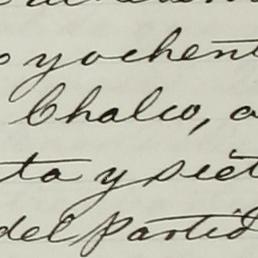 y ochent
Chalco, a
ta y siet
del Partid